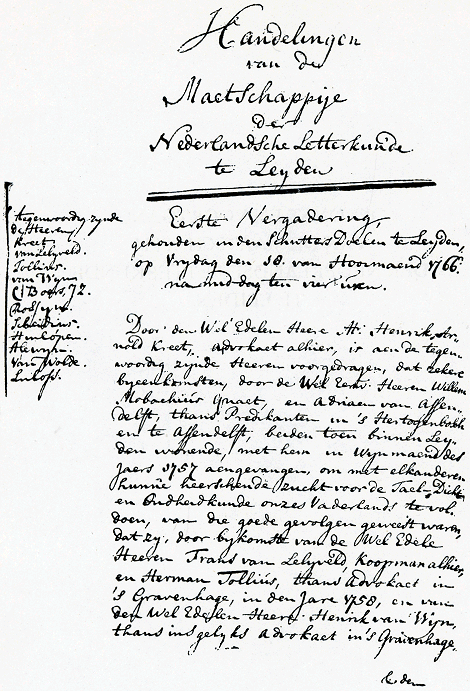 Handelingen
van de
Maetschappije
der
Nederlandsche Letterkunde
te Leyden
Eerste Vergadering,
gehouden in den Schutters Doelen te Leyden,
op Vrydag den 18. van Hooimaend 1766.
na middag ten vier uren.
tegenwoordig zijnde
de Heeren
Kreet.
van Lelyveld.
Tollius.
van Wyn
C: Boers, JZ.
Scheidius.
Hinlópen.
Alewyn.
Van Wolde.
Lulofs.
Door den Wel Edelen Heere Mr. Henrik Ar-
nold Kreet, Advokaet alhier, is aen de tegen-
woordig zijnde Heeren voorgedragen, dat zekere
byeenkomsten, door de Wel Eerw. Heeren Willem
Mobachius Quaet, en Adriaen van Assen-
delft, thans Predikanten in 's Hertogenbosch
en te Assendelft, beiden toen binnen Ley-
den wonende, met hem in Wynmaend des
Jaers 1757 aengevangen, om met elkanderen
hunne heerschende zucht voor de Tael- Dicht-
en Oudheidkunde onzes Vaderlands te vol-
doen, van die goede gevolgen geweest waren,
dat zy, door bykomste van de Wel Edele
Heeren Frans van Lelyveld, Koopman alhier,
en Herman Tollius, thans Advokaet in
's Gravenhage, in den Jare 1758, en van
den Wel Edelen Heere Henrik van Wyn,
thans insgelyks Advokaet in 's Gravenhage,